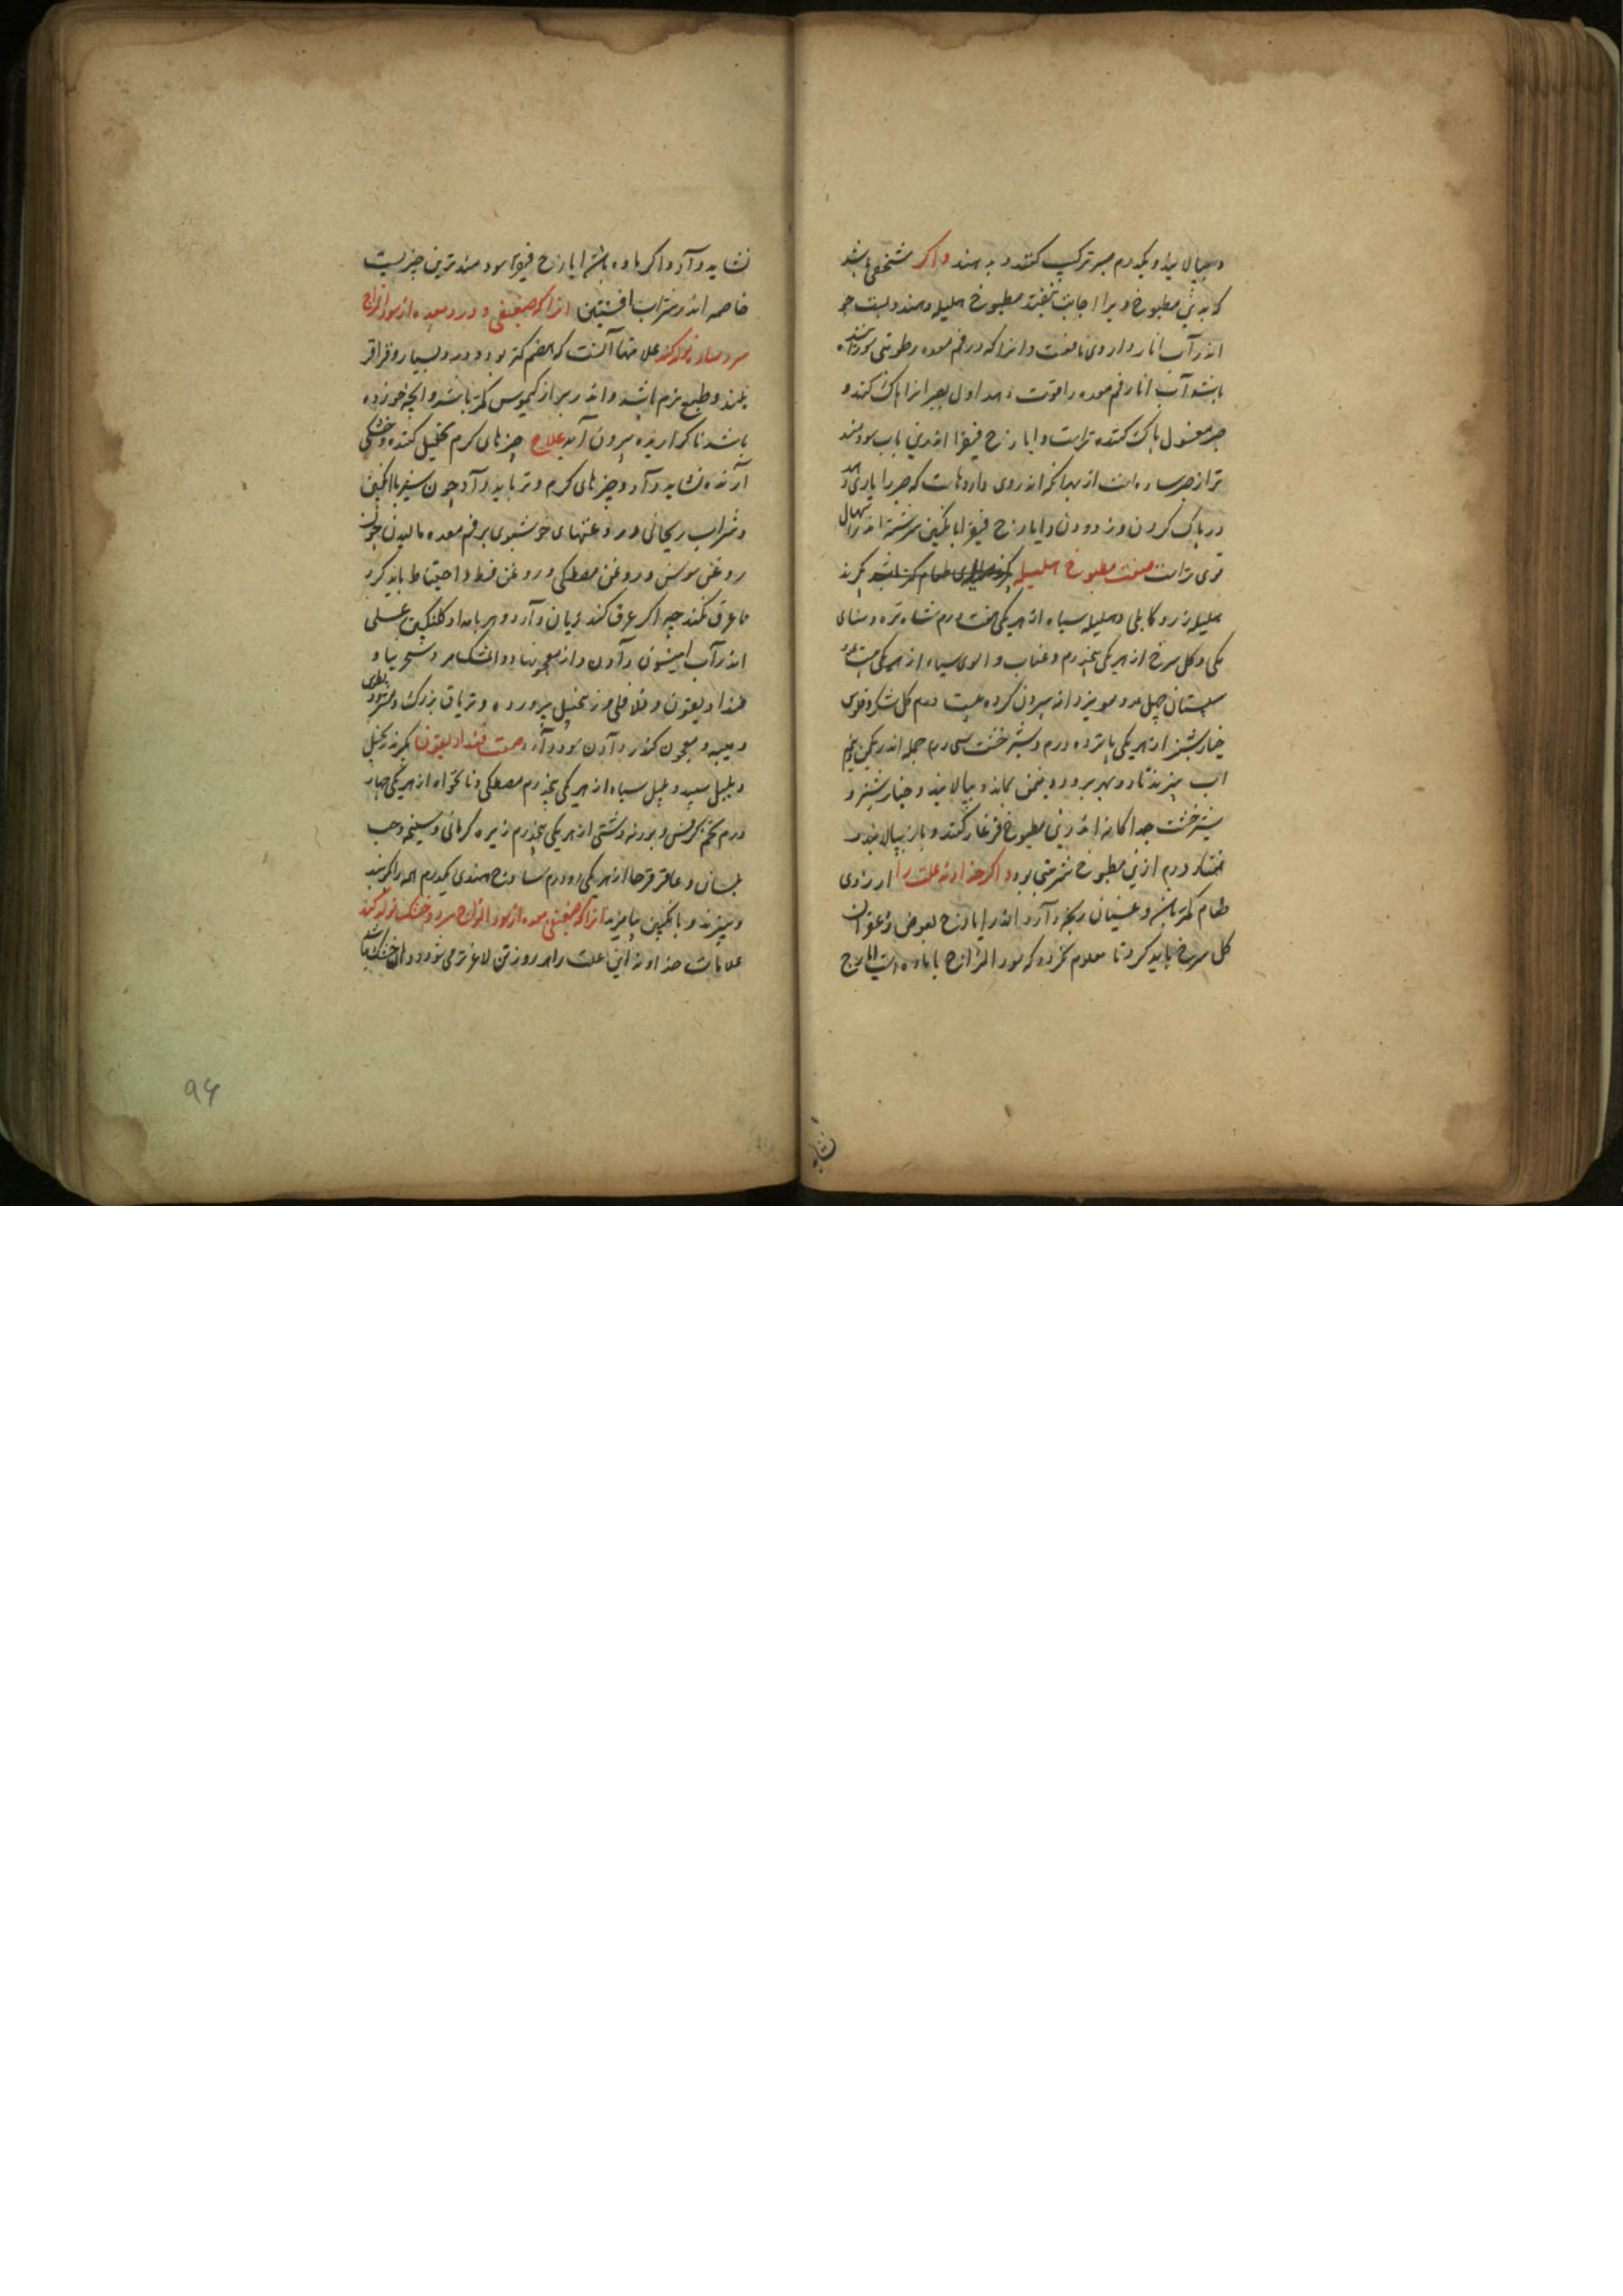 و بپالایند و یکدرم صبر ترکیب کنند و بدهند واکر شخصی باشد
که بدین مطبوخ ویرا اجابت نیفتد مطبوخ هلیله دهند و پست جو
اندر آب انار دادن نافعست و انرا که در فم معده رطوبتی سوزاننده
باشد آب انار فم معده را قوت دهد اول بصبر انرا پاک کنند و
صبر مغسول پاک کننده ترست و ایارج فیقرا اندرین باب سودمند
تر از صبر ساده است از بهر انکه اندر وی داروهاست که صبر را یاری دهد
در پاک کردن و زدودن و ایارج فیقرا بانکبین سرشته اندر اسهال
قوی ترست صفت مطبوخ هلیله بکیرند
هلیله زرد و کابلی و هلیله سیاه از هر یکی هفت درم شاه تره و سنای
مکی و کل سرخ از هر یکی پنجدرم و عناب و الوی سیاه از هر یکی بیست عدد
سپستان چهل عدد مویز دانه بیرون کرده بیست درم کل شکر و فلوس
خیارشنبر از هر یکی پانزده درم و شیرخشت سی درم جمله اندر یکمن و نیم
اب بپزند تا دو بهر برود و نیمن بماند و بپالایند و خیارشنبر و
شیرخشت جداکانه اندرین مطبوخ فرغار کنند و باز بپالایند
هشتاد درم ازین مطبوخ شربتی بود واکر خداوند علت را ارزوی
طعام کمتر باشد و غثیان رنجه دارد اندر ایارج بعوض زعفران
کل سرخ باید کرد تا معلوم نکردد که سوء المزاج با ماده است ایارج
نشاید
نشاید داد و اکر ماده باشد ایارج فیقرا سودمندترین چیزیست
خاصه اندر شراب افسنتین انرا که ضعیفی و درد معده از سوء المزاج
سرد ساده تولد کند علامتها آنست که هضم کمتر بود و درد بسیار و قراقر
بلند و طبع نرم باشد و اندر براز کیموس کمتر باشد و انچه خورده
باشد ناکواریده بیرون آید علاج چیزهای کرم تحلیل کننده و خشکی
آرنده نشاید داد و چیزهای کرم و تر باید داد چون شیر با انکبین
و شراب ریحانی و روغنهای خوشبوی بر فم معده مالیدن چون
روغن سوسن و روغن مصطکی و روغن قسط و احتیاط باید کرد
تا عرق نکند چه اکر عرق کند زیان دارد و هر بامداد کلنکبین عسلی
اندر آب انیسون دادن و از معجونها دواء المشک مر و شجرینا و
قنداد یقون و فلافلی و زنجبیل پرورده و تریاق بزرک و مثرودیطوس
و میبه و معجون کندر دادن سود دارد صفت قنداد یقون بکیرند زنجبیل
و پلپل سپید و پلپل سیاه از هر یکی پنجدرم مصطکی و نانخواه از هر یکی چهار
درم تخم کرفس و پودنه دشتی از هر یکی پنجدرم زیره کرمانی و سلیخه و حب
بلسان و عاقرقرحا از هر یکی دو درم ساذج هندی یکدرم همه را بکوبند
و ببیزند و بانکبین بیامیزند انرا که ضعیفی معده از سوء المزاج سرد و خشک تولد کند
علامات خداوند این علت را هر روز تن لاغرتر می شود و دهان خشک باشد
94